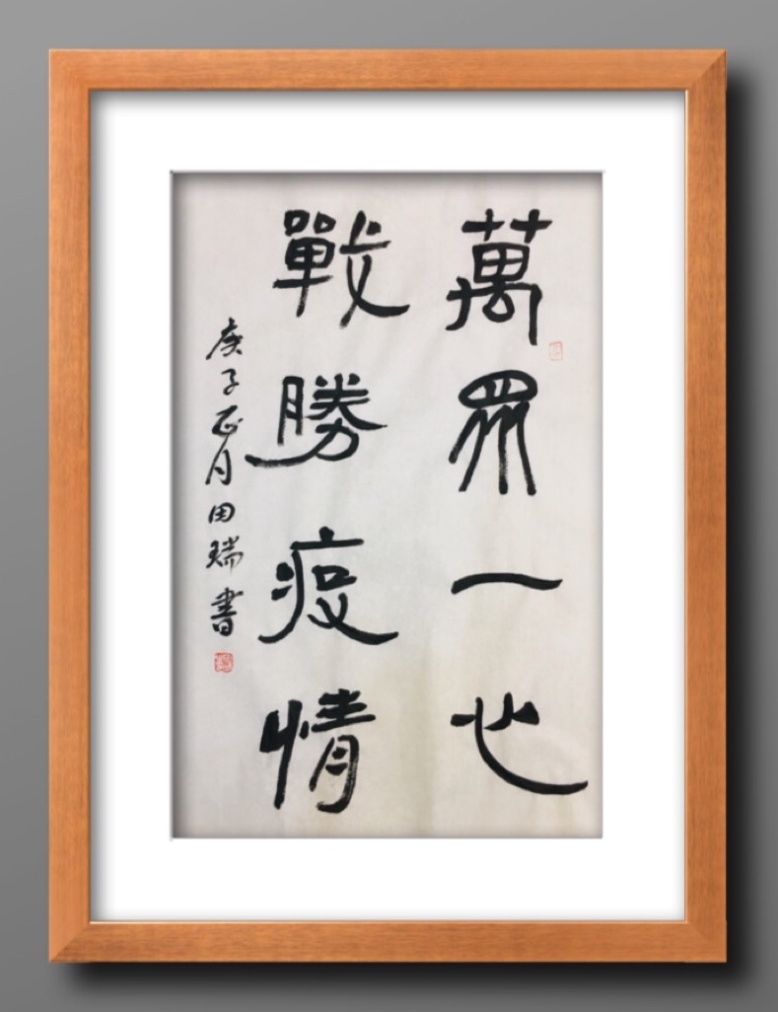 萬眾一心
戰勝疫情
庚子正月田瑞書